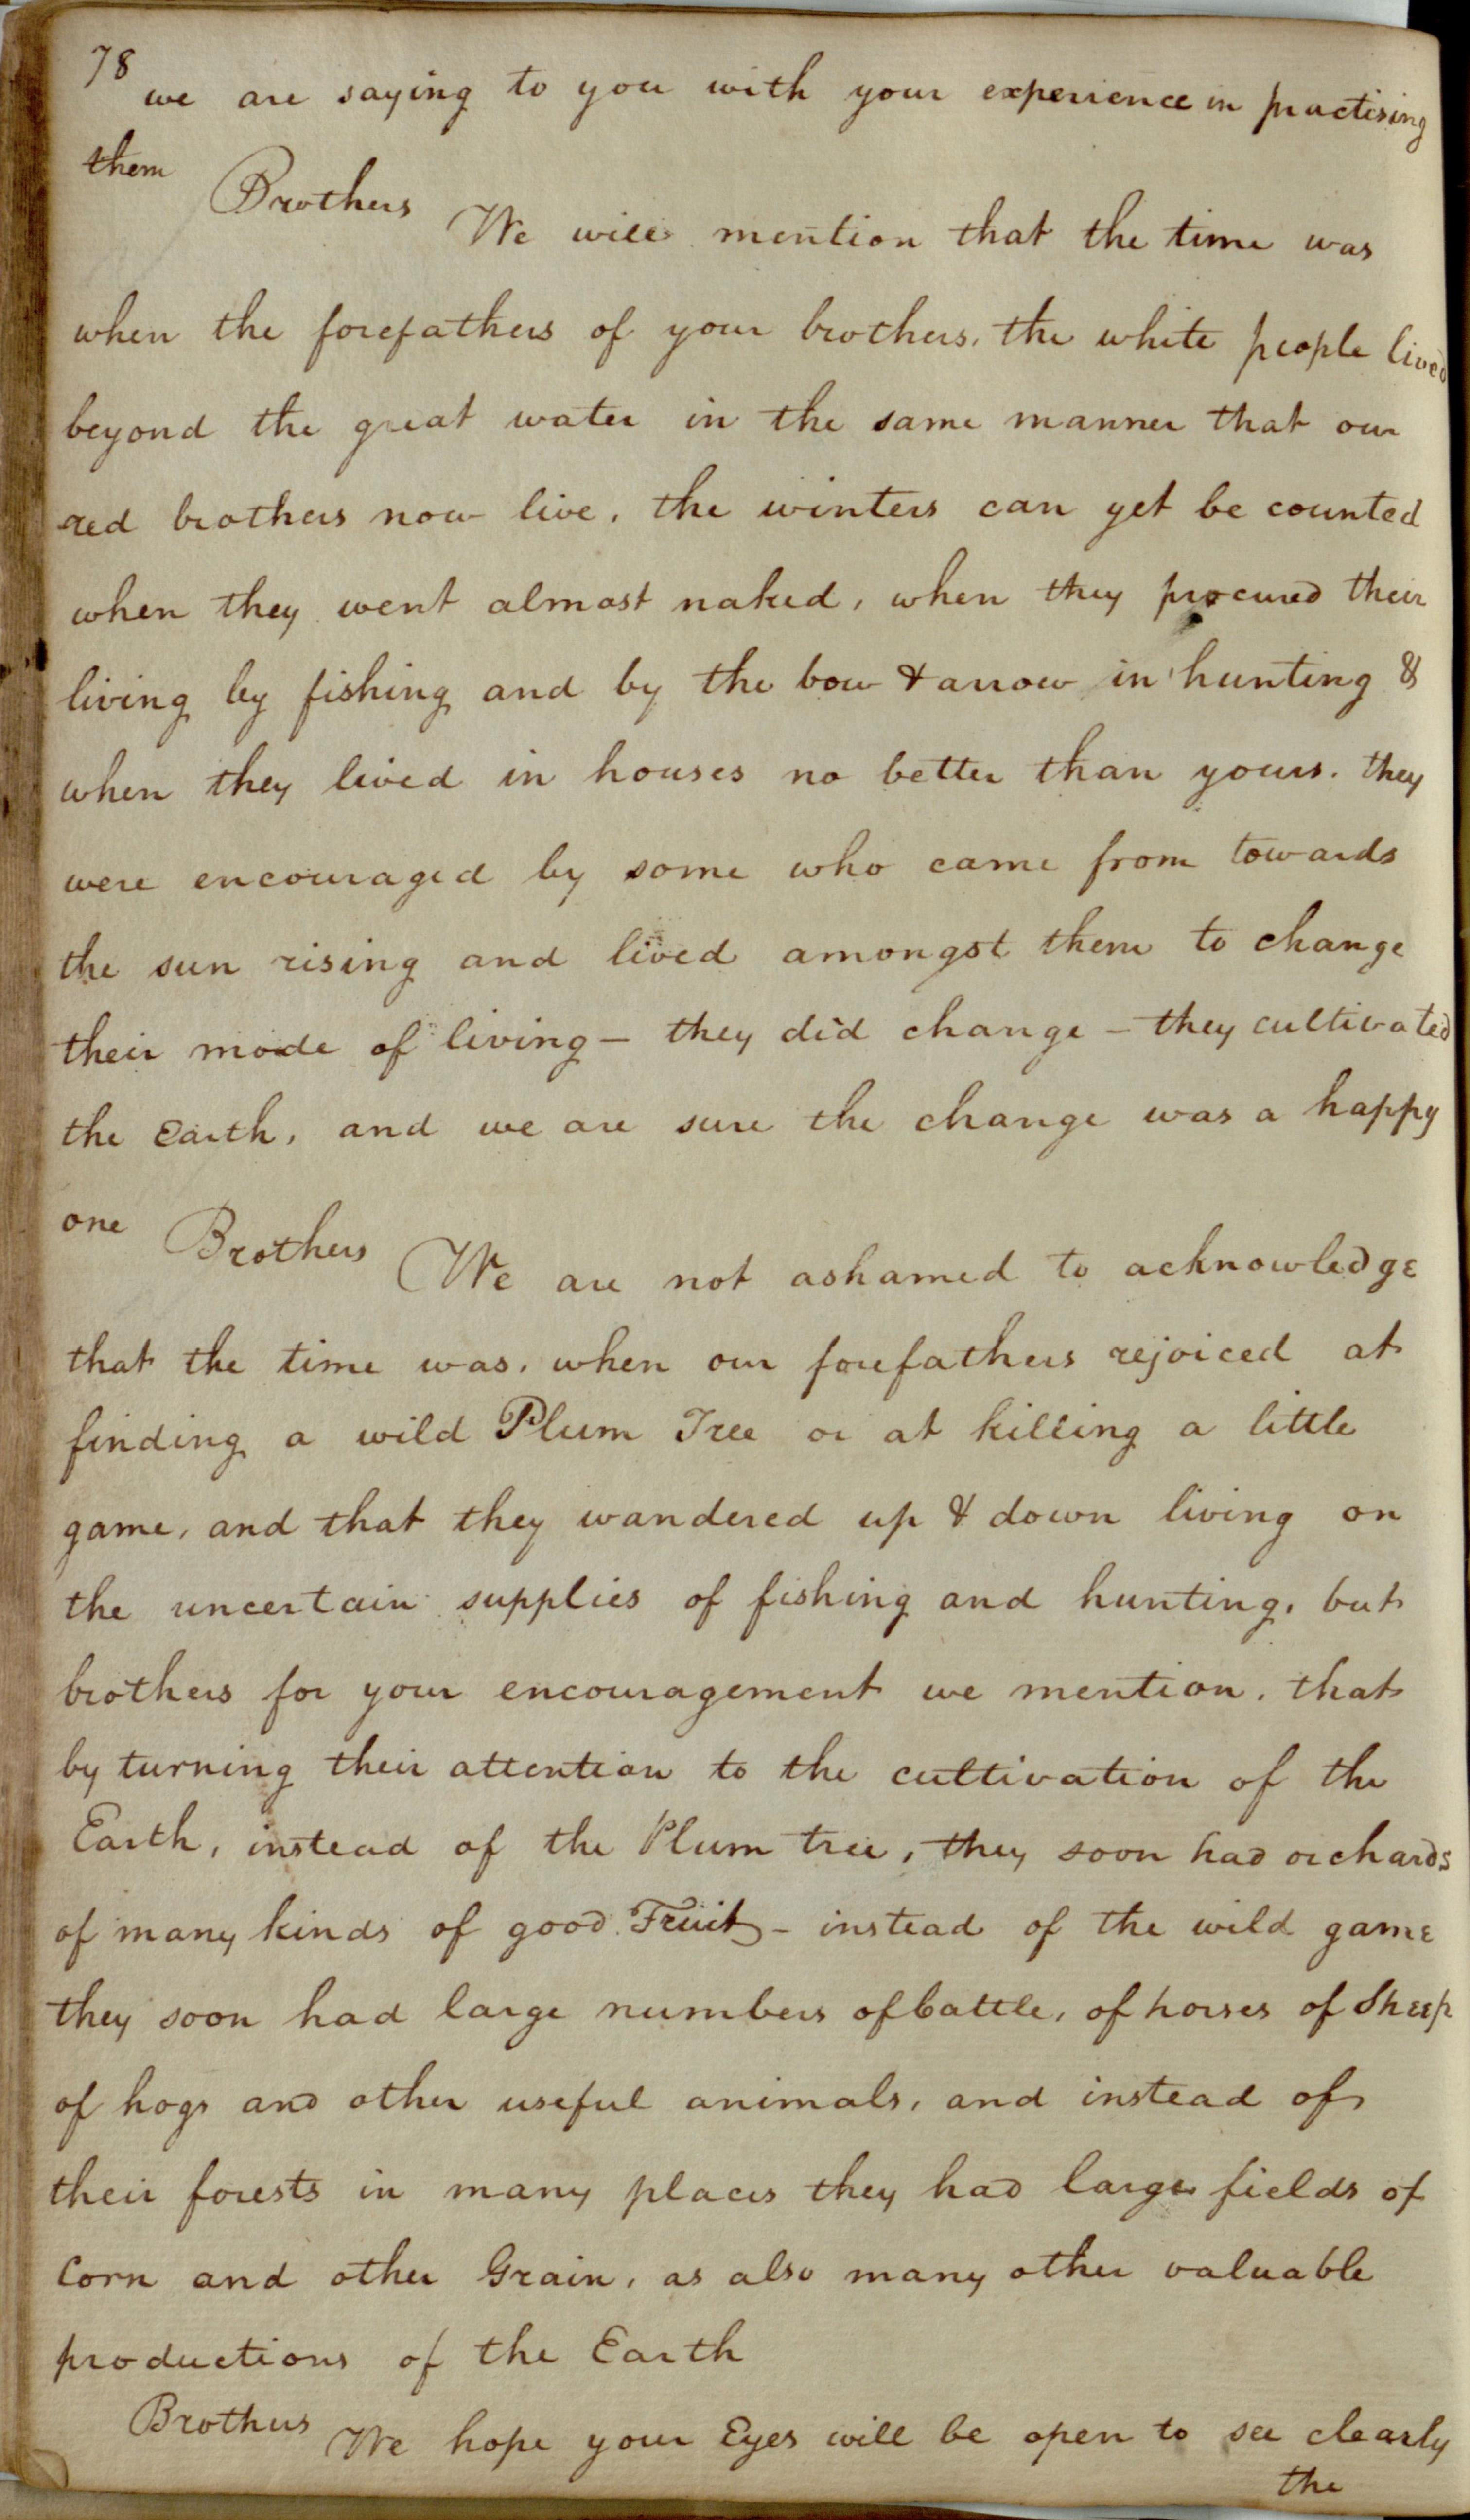 78
we are saying to you with your experience in practising
them
Brothers
We will mention that the time was
when the forefathers of your brothers, the white people lived
beyond the great water in the same manner that our
red brothers now live, the winters can yet be counted
when they went almost naked, when they procured their
living by fishing and by the bow & arrow in hunting &
when they lived in houses no better than yours. they
were encouraged by some who came from towards
the sun rising and lived amongst them to change
their mode of living - they did change - they cultivated
the Earth, and we are sure the change was a happy
one
Brothers
We are not ashamed to acknowledge
that the time was, when our forefathers rejoiced at
finding a wild Plum Tree or at killing a little
game, and that they wandered up & down living on
the uncertain supplies of fishing and hunting, but
brothers for your encouragement we mention, that
by turning their attention to the cultivation of the
Earth, instead of the Plum tree, they soon had orchards
of many kinds of good Fruit - instead of the wild game
they soon had large numbers of Cattle, of horses of Sheep
of hogs and other useful animals, and instead of
their forests in many places they had large fields of
Corn and other Grain, as also many other valuable
productions of the Earth
Brothers
We hope your Eyes will be open to see clearly
the